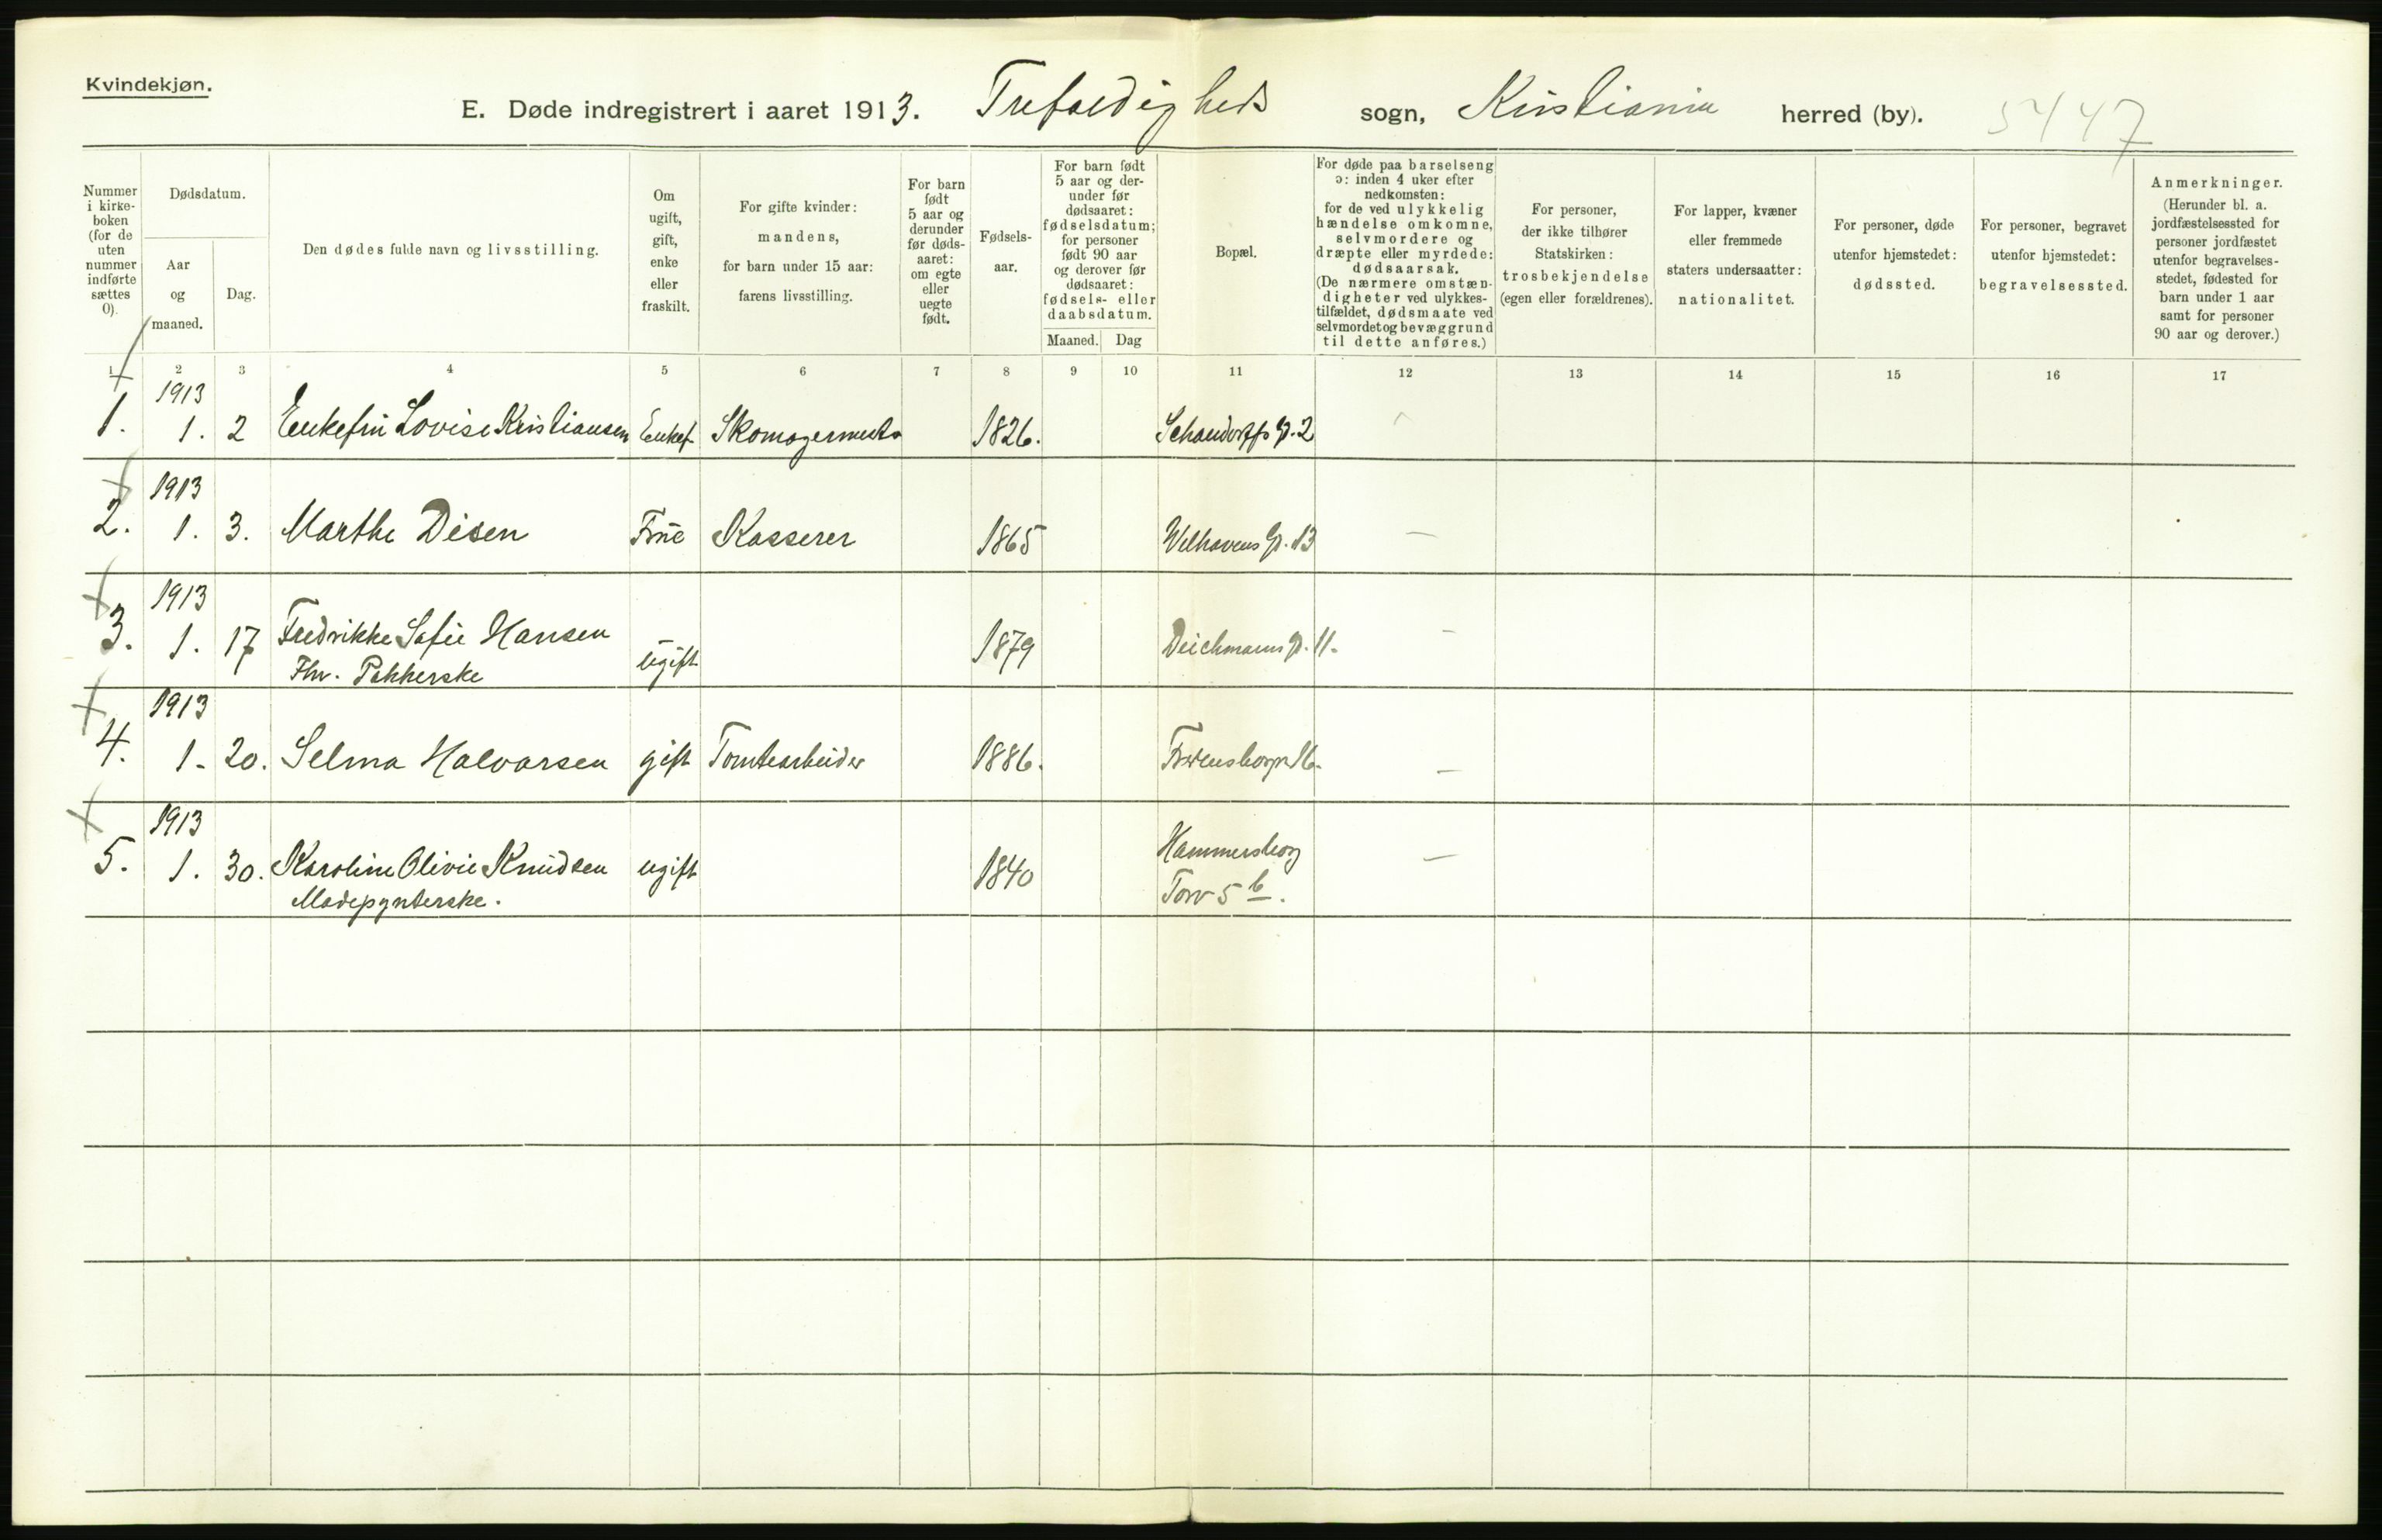 Kvindekjøn.
E. Døde indregistrert i aaret 1913. Trefoldigheds sogn, Kristiania herred (by). 5447
Nummer i kirke-boken (for de uten nummer indførte sættes 0).
Dødsdatum.
Aar og maaned.
Dag.
Den dødes fulde navn og livsstilling.
Om ugift, gift, enke eller fraskilt.
For gifte kvinder: mandens, for barn under 15 aar: farens livsstilling.
For barn født 5 aar og derunder før døds-aaret: om egte eller uegte født.
Fødsels-aar.
For barn født 5 aar og der-under før dødsaaret: fødselsdatum; for personer født 90 aar og derover før dødsaaret: fødsels- eller daabsdatum.
Maaned. Dag
Bopæl.
For døde paa barselseng ɔ: inden 4 uker efter nedkomsten: for de ved ulykkelig hændelse omkomne, selvmordere og dræpte eller myrdede: dødsaarsak. (De nærmere omstæn-digheter ved ulykkes-tilfældet, dødsmaate ved selvmordet og bevæggrund til dette anføres.)
For personer, der ikke tilhører Statskirken: trosbekjendelse (egen eller forældrenes).
For lapper, kvæner eller fremmede staters undersaatter: nationalitet.
For personer, døde utenfor hjemstedet: dødssted.
For personer, begravet utenfor hjemstedet: begravelsessted.
Anmerkninger. (Herunder bl. a. jordfæstelsessted for personer jordfæstet utenfor begravelses-stedet, fødested for barn under 1 aar samt for personer 90 aar og derover.)
1 2 3 4 5 6 7 8 9 10 11 12 13 14 15 16 17
1913
1. 1. 2 Enkefru Lovise Kristiansen Enkef. Skomagermester 1826. Schandorffs g. 2
1913
2. 1. 3. Marthe Disen Frue Kasserer 1865 Welhavens g. 13 —
1913
3. 1. 17 Fredrikke Sofie Hansen ugift 1879 Deichmans g. 11. —
Fhv. Pakkerske
1913
4. 1. 20. Selma Halvorsen gift Tomtearbeider 1886. 16. —
1913
5. 1. 30. Karoline Olivie Knudsen ugift 1840 Hammersborg —
Modepynterske. Torv 5 b.